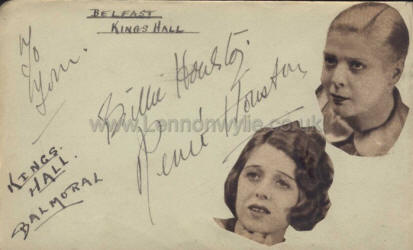 BELFAST
KINGS HALL
To
Tom.
Billie Houston.
Renée Houston
KINGS.
HALL.
BALMORAL
www.Lennonwylie.co.uk